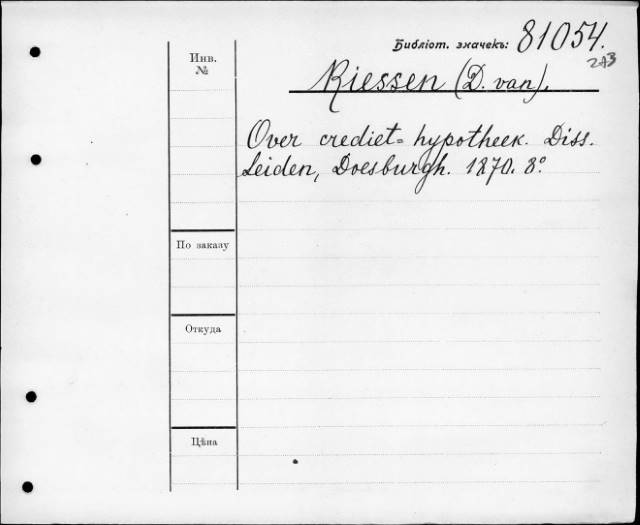 Библіот. значекъ: 81054.
2A3
Инв.
№
Riessen (D. van).
Over crediet= hypotheek. Diss.
Leiden, Doesburgh. 1870. 8°.
По заказу
Откуда
Цѣна